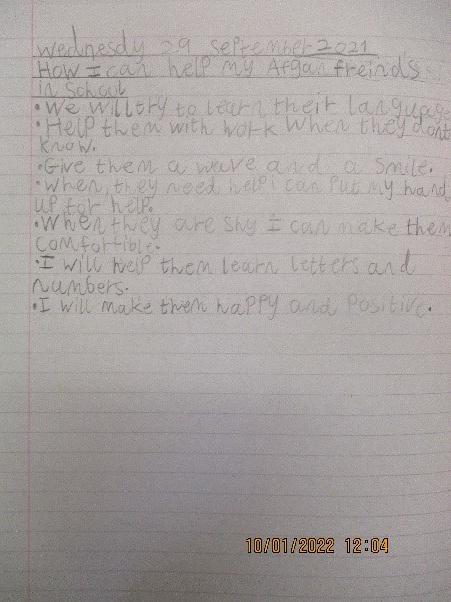 Wednesdy 29 September 2021
How I can help my Afgan freinds
in School
• We will try to learn their language
• Help them with work when they dont
know.
• Give them a wave and a smile.
• when they need help i can put my hand
up for help.
• When they are shy I can make them
comfortible.
• I will help them learn letters and
numbers.
• I will make them happy and positive.
10/01/2022 12:04